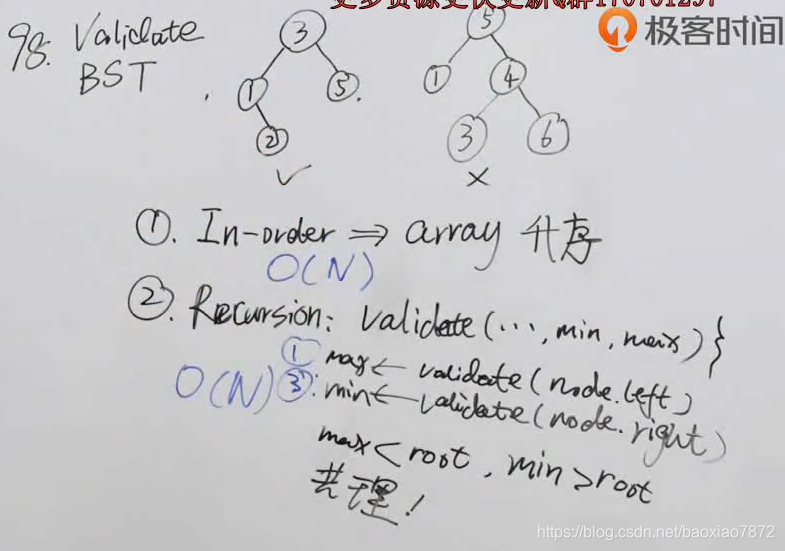 极客时间
98. Validate
BST
3
1 5
2
✓
5
1 4
3 6
×
①. In-order ⇒ array 升序
O(N)
②. Recursion: Validate(..., min, max) }
① max ← validate(node.left)
O(N) ③: min ← validate(node.right)
max < root, min > root
！
https://blog.csdn.net/baoxiao7872